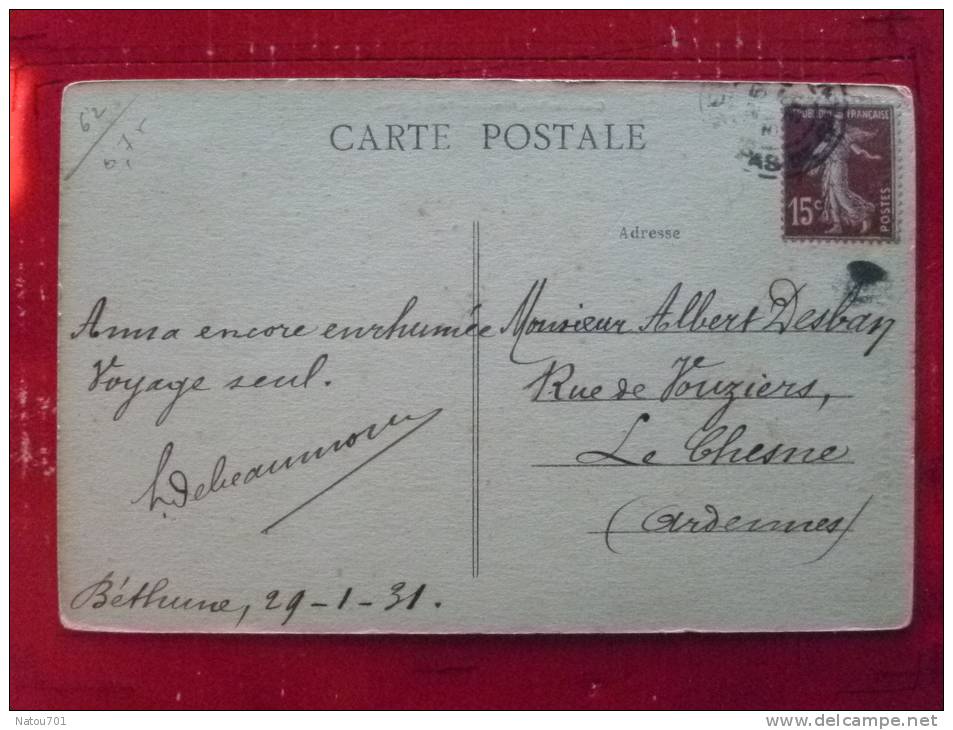 62
CARTE POSTALE
PAS
RÉPUBLIQUE FRANÇAISE
15c
POSTES
Adresse
Anna encore enrhumée
Voyage seul.
Monsieur Albert Desban
Rue de Vouziers,
Le Chesne
(Ardennes)
Béthune, 29-1-31.
Natou701
www.delcampe.net